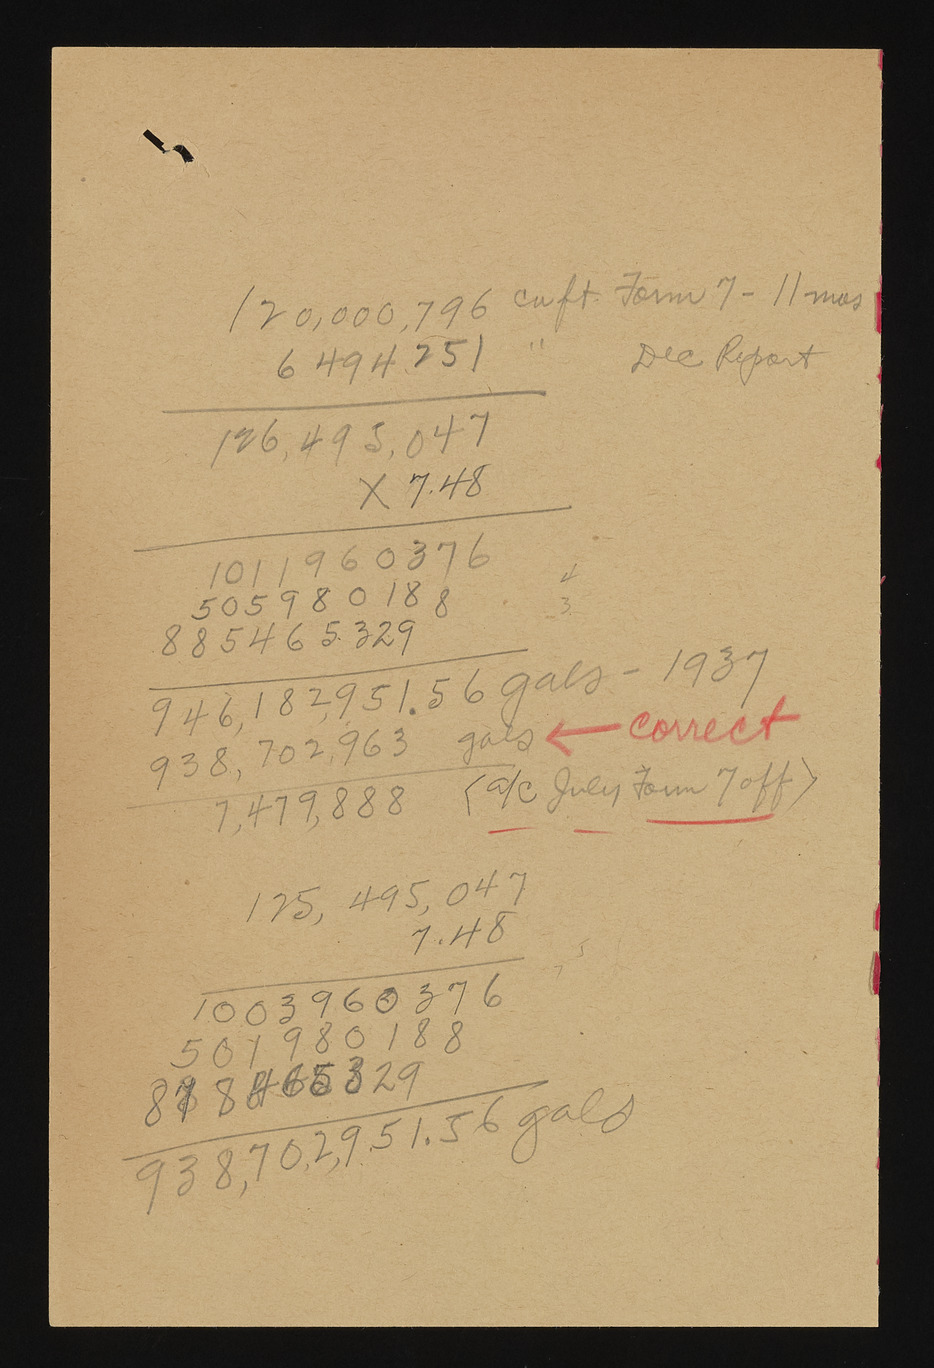 120,000,796 cu ft. Form 7 - 11 mos
6 494 251 " Dec Report
126,495,047
X 7.48
1011960376
505980188
885465329
946,182,951.56 gals - 1937
938,702,963 gals ← correct
7,479,888 (a/c July Form 7 off)
125,495,047
7.48
1003960376
501980188
878465329
938,702,951.56 gals